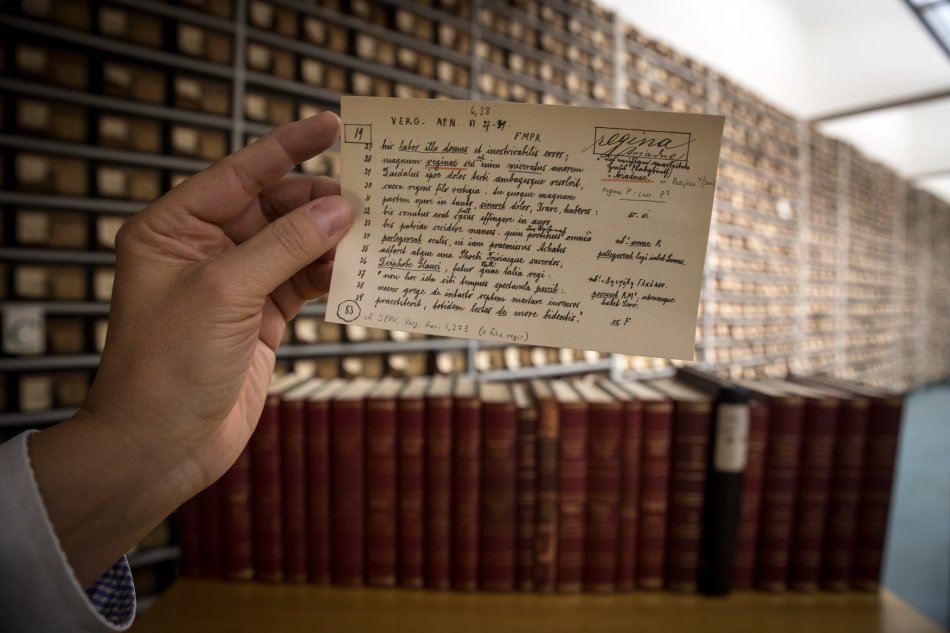 6,28
VERG. AEN. VI 27-39
19
FMPR
27 hic labor ille domus et inextricabilis error;
28 magnum reginae sed enim miseratus amorem
29 Daedalus ipse dolos tecti ambagesque resolvit,
30 caeca regens filo vestigia. tu quoque magnam
31 partem opere in tanto, sineret dolor, Icare, haberes:
32 bis conatus erat casus effingere in auro,
33 bis patriae cecidere manus. quin protinus omnia
34 perlegerent oculis, ni iam praemissus Achates
35 adforet atque una Phoebi Triviaeque sacerdos,
36 Deiphobe Glauci, fatur quae talia regi:
37 "non hoc ista sibi tempus spectacula poscit:
38 nunc grege de intacto septem mactare iuvencos
39 praestiterit, totidem lectas de more bidentis."
53
cf. SERV. Verg. Aen. 1,273 (= filia regis)
regina
Ariadnae, or Pasiphae?
regina P: corr. P²
sc. si.
omne R
pellegerent
poscunt RM¹, utrumque
habet Serv.
F